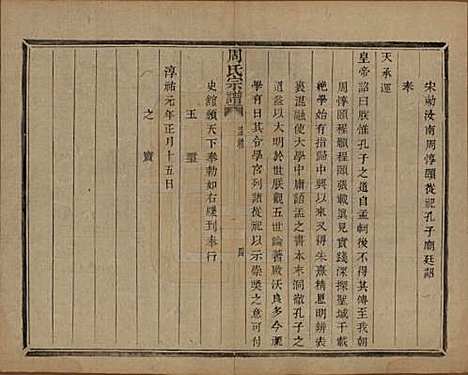 宋勅汝南周惇頤從祀孔子廟廷詔
奉
天承運
皇帝詔曰朕惟孔子之道自孟軻後不得其傳至我朝
周惇頤程顥程頤張載眞見實踐深探聖域千載
絶學始有指歸中興以來又得朱熹精思明辨表
裏混融使大學中庸語孟之書本末洞徹孔子之
道益以大明於世朕觀五世論著啟沃良多今視
學有日其令學官列諸從祀以示崇奬之意可付
史館頒天下奉勅如右牒到奉行
玉璽
淳祐元年正月十五日
之寶
周氏宗譜